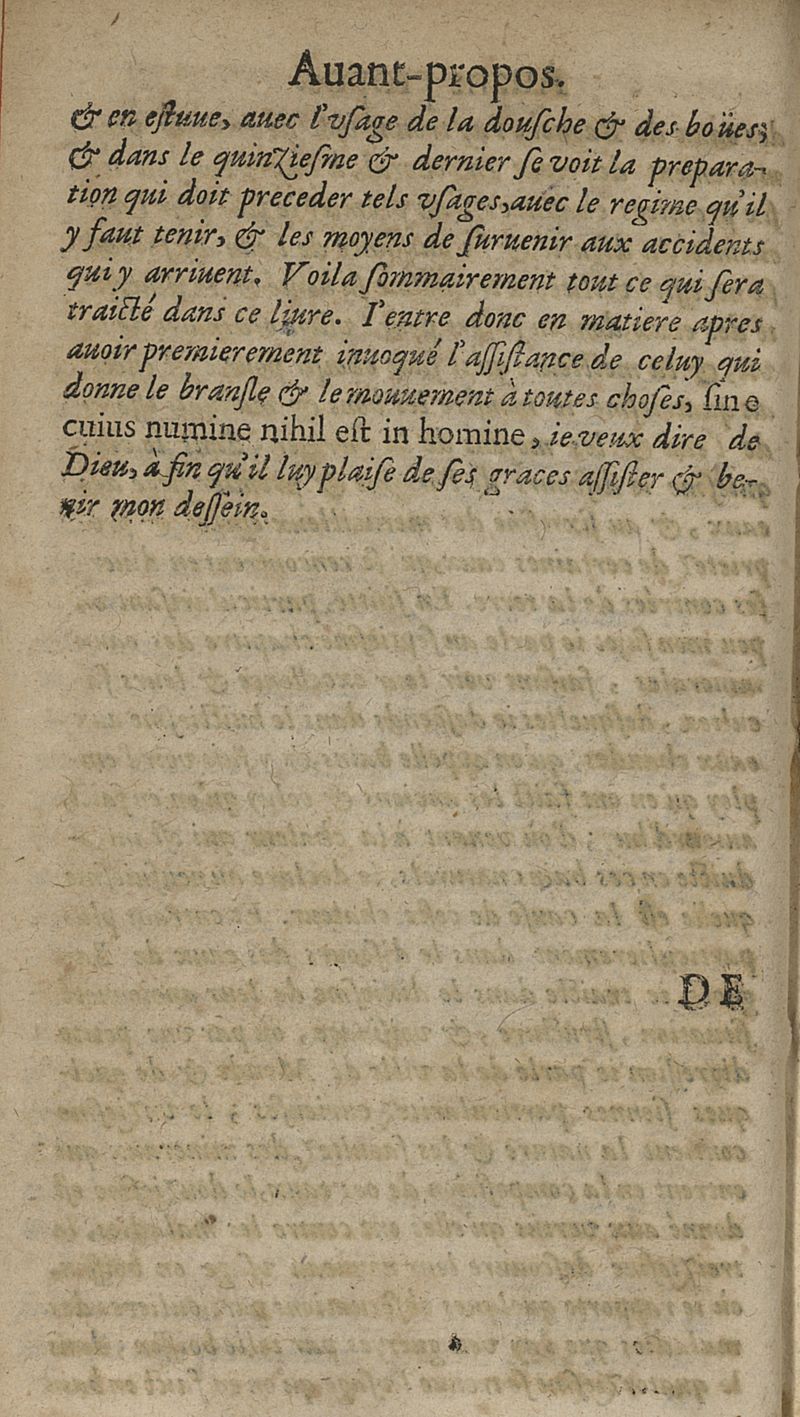 Auant-propos.
& en eſtuue, auec l'vſage de la douſche & des boües;
& dans le quinzieſme & dernier ſe voit la prepara-
tion qui doit preceder tels vſages, auec le regime qu'il
y faut tenir, & les moyens de ſuruenir aux accidents
qui y arriuent. Voila ſommairement tout ce qui ſera
traicté dans ce liure. I'entre donc en matiere apres
auoir premierement inuoqué l'aſſiſtance de celuy qui
donne le branſle & le mouuement à toutes choſes, ſine
cuius numine nihil eſt in homine, ie veux dire de
Dieu, à fin qu'il luy plaiſe de ſes graces aſſiſter & be-
nir mon deſſein.
DE